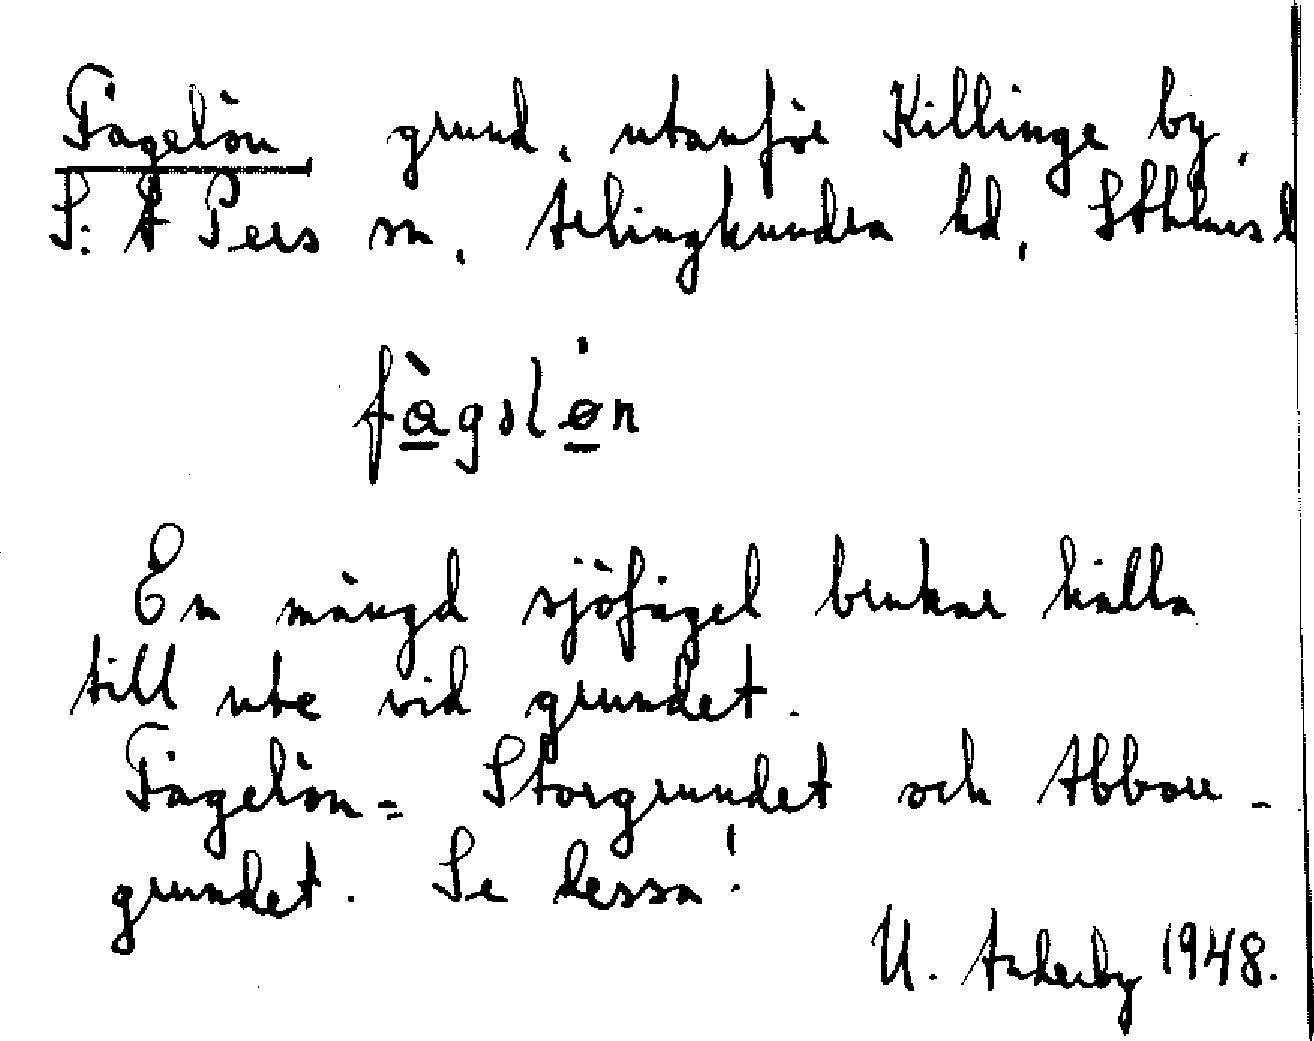 Fågelön grund, utanför Killinge by,
S: t Pers sn, Ärlinghundra hd, Sthlms l
fȧ̲gəlø̲n
En mängd sjöfågel brukar hålla
till ute vid grundet.
Fågelön = Storgrundet och Abborr-
grundet. Se dessa!
U. Ankerby 1948.